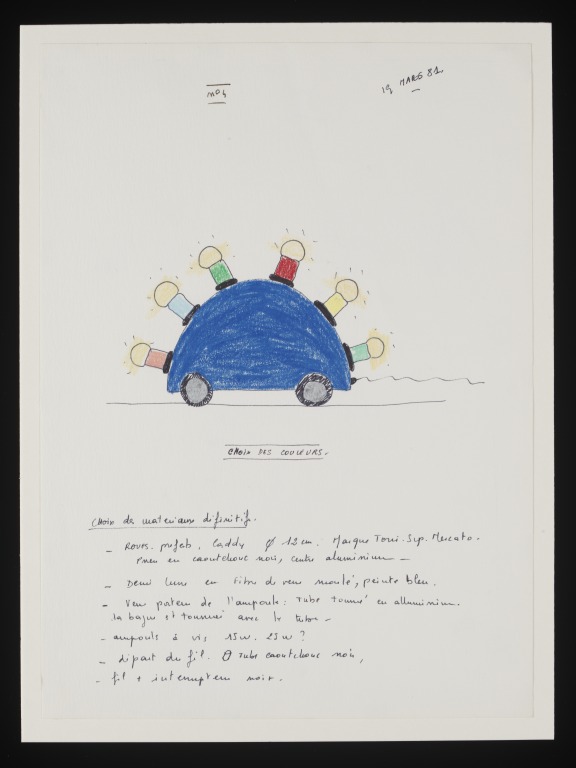 nº4
19 MARS 81.
CHOIX DES COULEURS.
Choix de materiaux difinitifs.
- Roues. prefab. Caddy Ø 12 cm. Marque Torri. Sup. Mercato.
Pneu en caoutchouc noir, centre aluminium -
- Demi lune en fibre de verre moulé, peinte bleu.
- Verr porteur de l'ampoule: Tube tourné en alluminium.
la bague est tournée avec le tube -
- ampoule à vis 15w. 25w ?
- départ du fil. Ø Tube caoutchouc noir,
- fil + interrupteur noir.